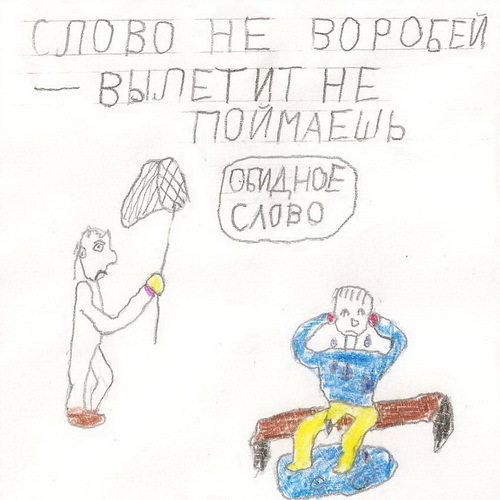 СЛОВО НЕ ВОРОБЕЙ
— ВЫЛЕТИТ НЕ
ПОЙМАЕШЬ
ОБИДНОЕ
СЛОВО